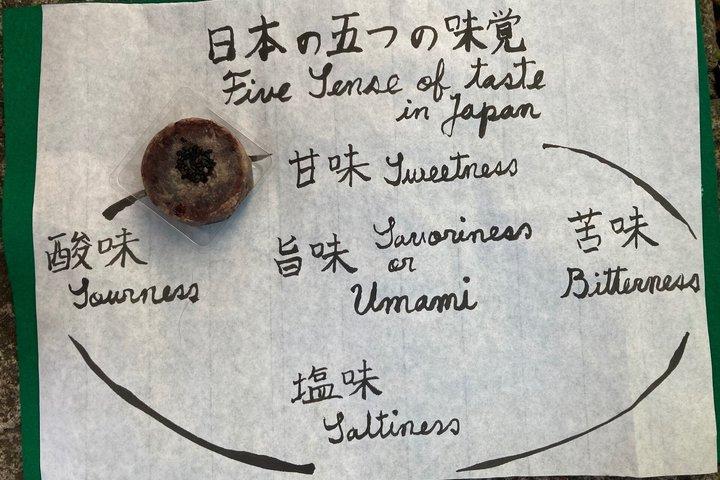 日本の五つの味覚
Five Sense of taste
in Japan
甘味 Sweetness
酸味
Sourness
旨味 Savoriness
or
Umami
苦味
Bitterness
塩味
Saltiness